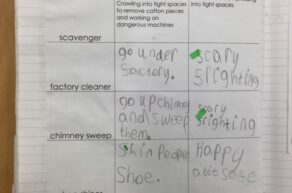 Crawling into tight spaces
to remove cotton pieces
and working on
dangerous machines
into tight
spaces.
scavenger
go under
factory.
scary
frighting
factory cleaner
go up chimny
and sweep
them.
scary
frighting
chimney sweep
shin People
Shoe.
Happy
a bit sose